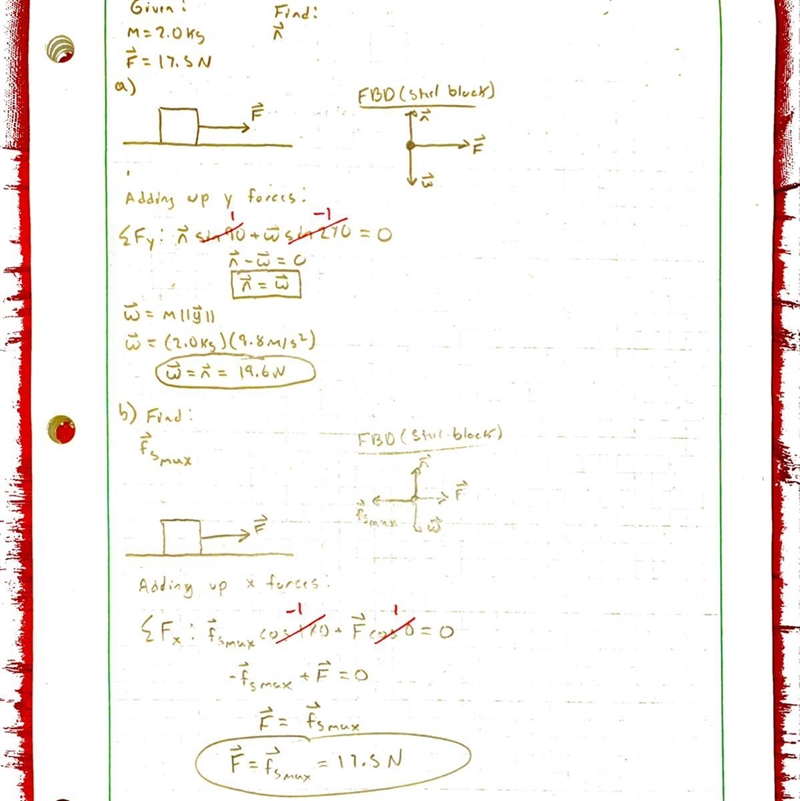 Given: Find:
M = 2.0 Kg n⃗
F⃗ = 17.5 N
a)
F⃗
FBD (steel block)
n⃗
F⃗
w⃗
Adding up y forces:
1 -1
ΣFy: n⃗ sin 90 + w⃗ sin 270 = 0
n⃗ - w⃗ = 0
n⃗ = w⃗
w⃗ = M||g⃗||
w⃗ = (2.0 Kg)(9.8 M/s²)
w⃗ = n⃗ = 19.6 N
b) Find:
f⃗smax
FBD (steel block)
n⃗
F⃗
f⃗smax
w⃗
F⃗
Adding up x forces:
-1 1
ΣFx: f⃗smax cos 180 + F⃗ cos 0 = 0
-f⃗smax + F⃗ = 0
F⃗ = f⃗smax
F⃗ = f⃗smax = 17.5 N